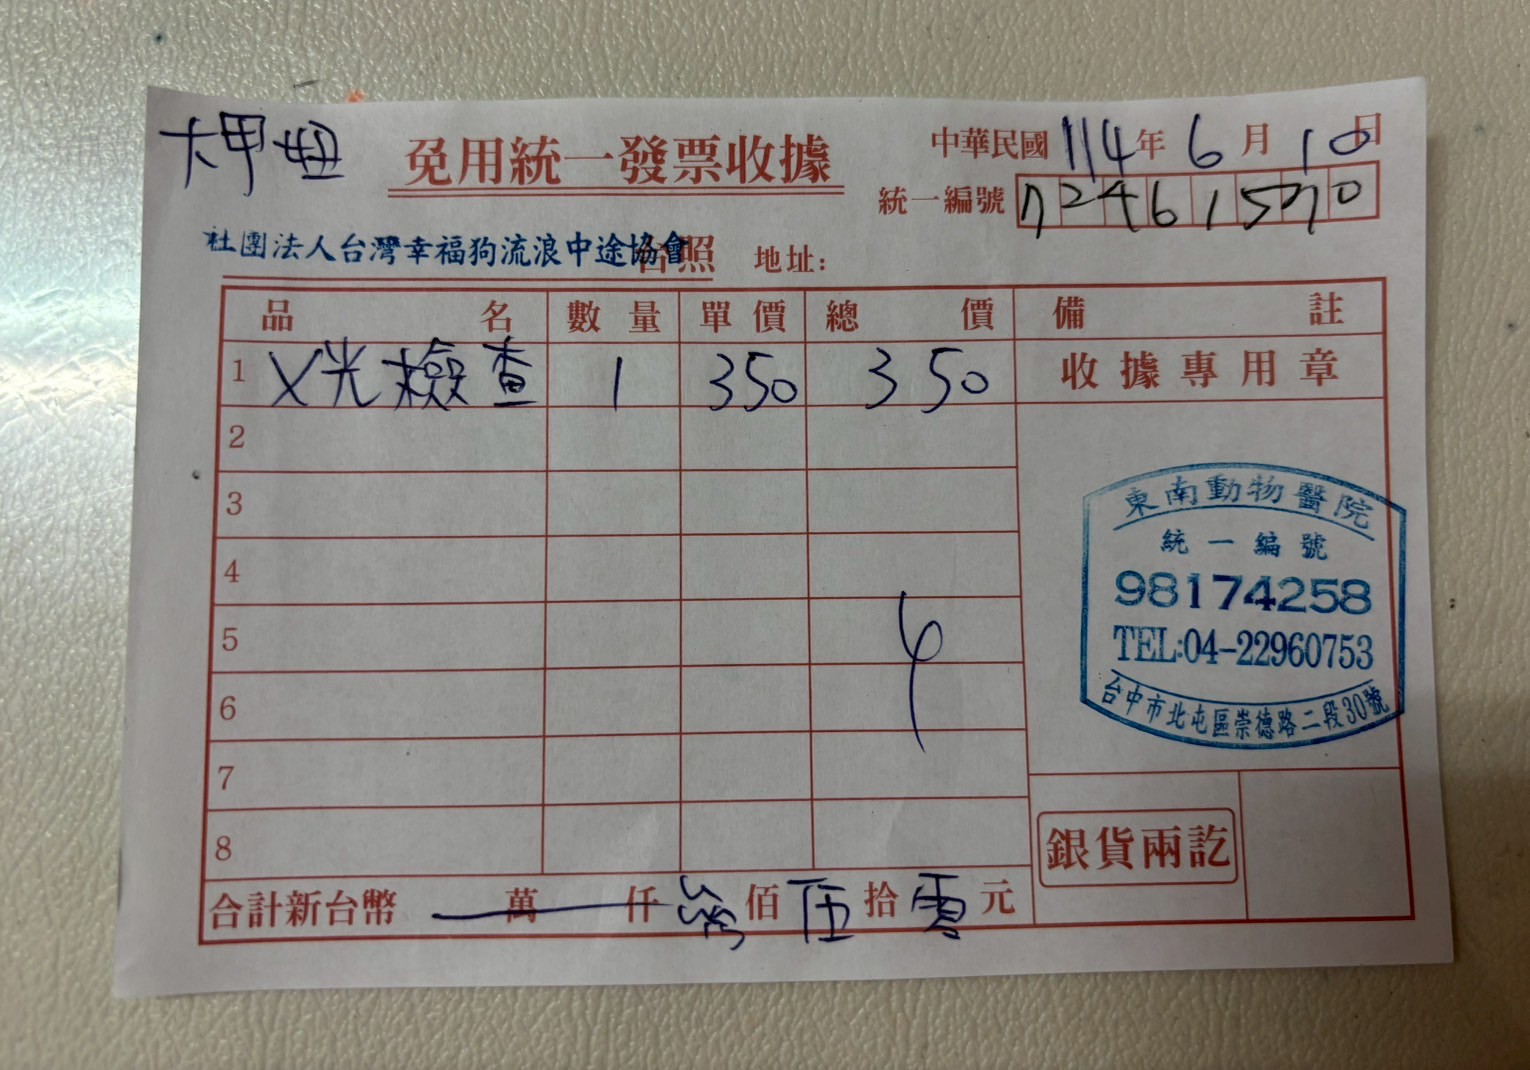 柙妞
免用統一發票收據
中華民國114年6月10日
統一編號 72461570
社團法人台灣幸福狗流浪中途協會 台照 地址:
品名 數量 單價 總價 備註
1 X光檢查 1 350 350 收據專用章
2
3
4
5
6
7
8
東南動物醫院
統一編號
98174258
TEL:04-22960753
台中市北屯區崇德路二段30號
銀貨兩訖
合計新台幣 萬 仟 參佰伍拾零元